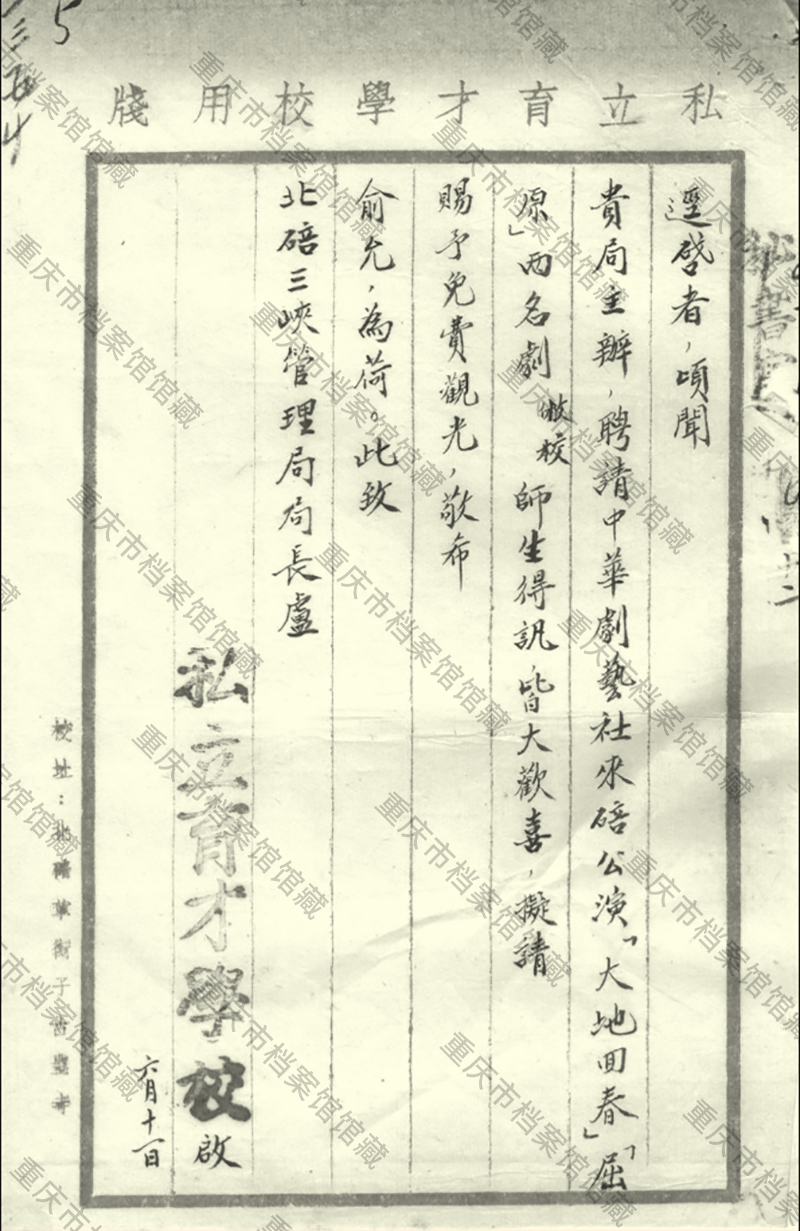 私立育才學校用牋
逕啓者，頃聞
貴局主辦，聘請中華劇藝社來碚公演「大地回春」「屈
原」兩名劇敝校師生得訊，皆大歡喜，擬請
賜予免費觀光，敬希
俞允，為荷。此致
北碚三峽管理局局長盧
私立育才學校啟
六月十一日
校址：北碚草街子古聖寺
重庆市档案馆馆藏